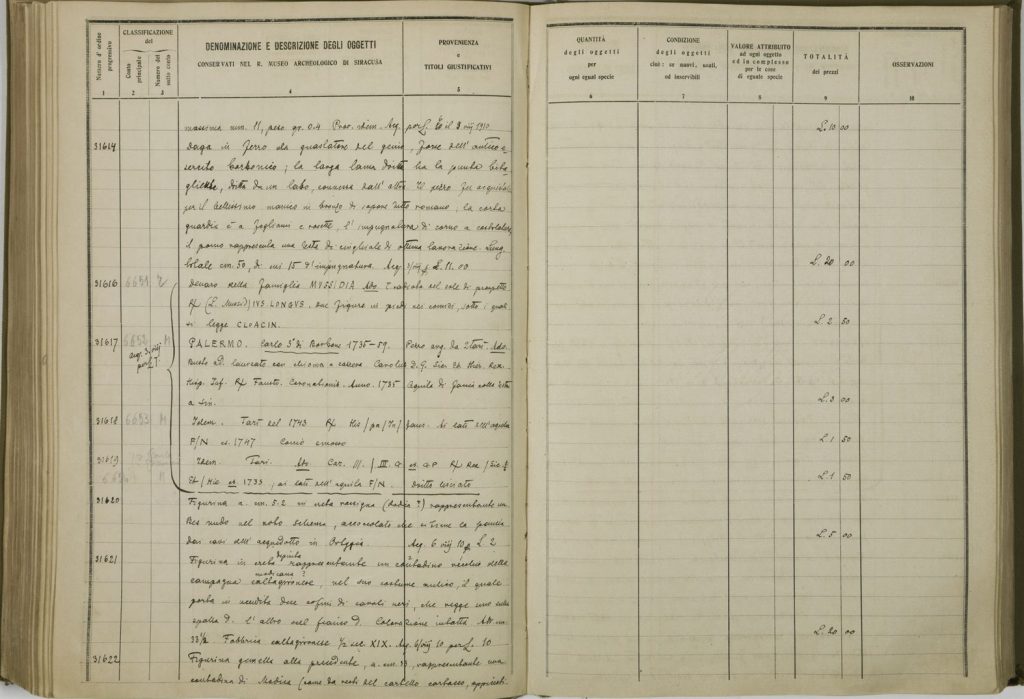 Numero d'ordine progressivo
CLASSIFICAZIONE
del
Conto principale
Numero del sotto conto
DENOMINAZIONE E DESCRIZIONE DEGLI OGGETTI
CONSERVATI NEL R. MUSEO ARCHEOLOGICO DI SIRACUSA
PROVENIENZA
e
TITOLI GIUSTIFICATIVI
1 2 3 4 5
massima mm. 11, peso gr. 0.4 Prov. idem. Acq. per L. il 3 viij 1910
31614 Daga in ferro da guastatore del genio, forse dell'antico e-
sercito borbonico; la larga lama diritta ha la punta
diritta da un lato, convessa dall'altro. Il pezzo fu acquistato
per il bellissimo manico in bronzo di sapore tutto romano; la corta
guardia è a fogliami e rosette, l'impugnatura di corno a cordolature
il pomo rappresenta una testa di cinghiale di ottima lavorazione. Lung.
totale cm. 50, di cui 15 d'impugnatura. Acq. L. 11.00
31616 6651 Denaro della famiglia MVSSIDIA testa radiata del sole di prospetto
(L. Mussid) IVS LONGVS. due figure in piedi nei comizi, sotto i quali
si legge CLOACIN.
31617 6652 M PALERMO. Carlo 3° di Borbone 1735-59. Pezzo arg. da 2 tarì.
acq. 3 viij
per £ 7.
Busto a D. laureato con chioma a corazza Carolus D. G. Sic. et Hier. Rex.
Hisp. Inf. Fausto. Coronationis. Anno. 1735 Aquila di faccia colla testa
a sin.
31618 6653 M Idem. Tarì del 1743 Ai lati dell'aquila
F/N es. 1747
31619 M Idem. Tarì. Car. III.
es. 1735, ai lati dell'aquila F/N. diritto lisciato
31620 Figurina a. cm. 5.2 in creta rossigna rappresentante un
Bes nudo nel noto schema, accoccolato che si tiene la pancia
Dai cavi dell'acquedotto in Ortygia. Acq. 6 viij 10 p. L. 2
31621 Figurina in creta dipinta rappresentante un contadino vecchio della
campagna calta­gironese, modicana? nel suo costume antico, il quale
porta in vendita due cofini di cavoli neri, che regge uno sulla
spalla d. l'altro sul fianco d. Colorazione intatta Alt. cm.
33 1/2 Fabbrica caltagironese 1/2 sec. XIX. Acq. 6/viij 10 per L. 10
31622 Figurina gemella alla precedente, a. cm. 33, rappresentante una
contadina di Modica (come da resti del cartello cartaceo,
QUANTITÀ
degli oggetti
per
ogni egual specie
CONDIZIONE
degli oggetti
cioè: se nuovi, usati,
od inservibili
VALORE ATTRIBUITO
ad ogni oggetto
ed in complesso
per le cose
di eguale specie
TOTALITÀ
dei prezzi
OSSERVAZIONI
6 7 8 9 10
L. 10 00
L. 20 00
L. 2 50
L. 3 00
L. 1 50
L. 1 50
L. 5 00
L. 20 00